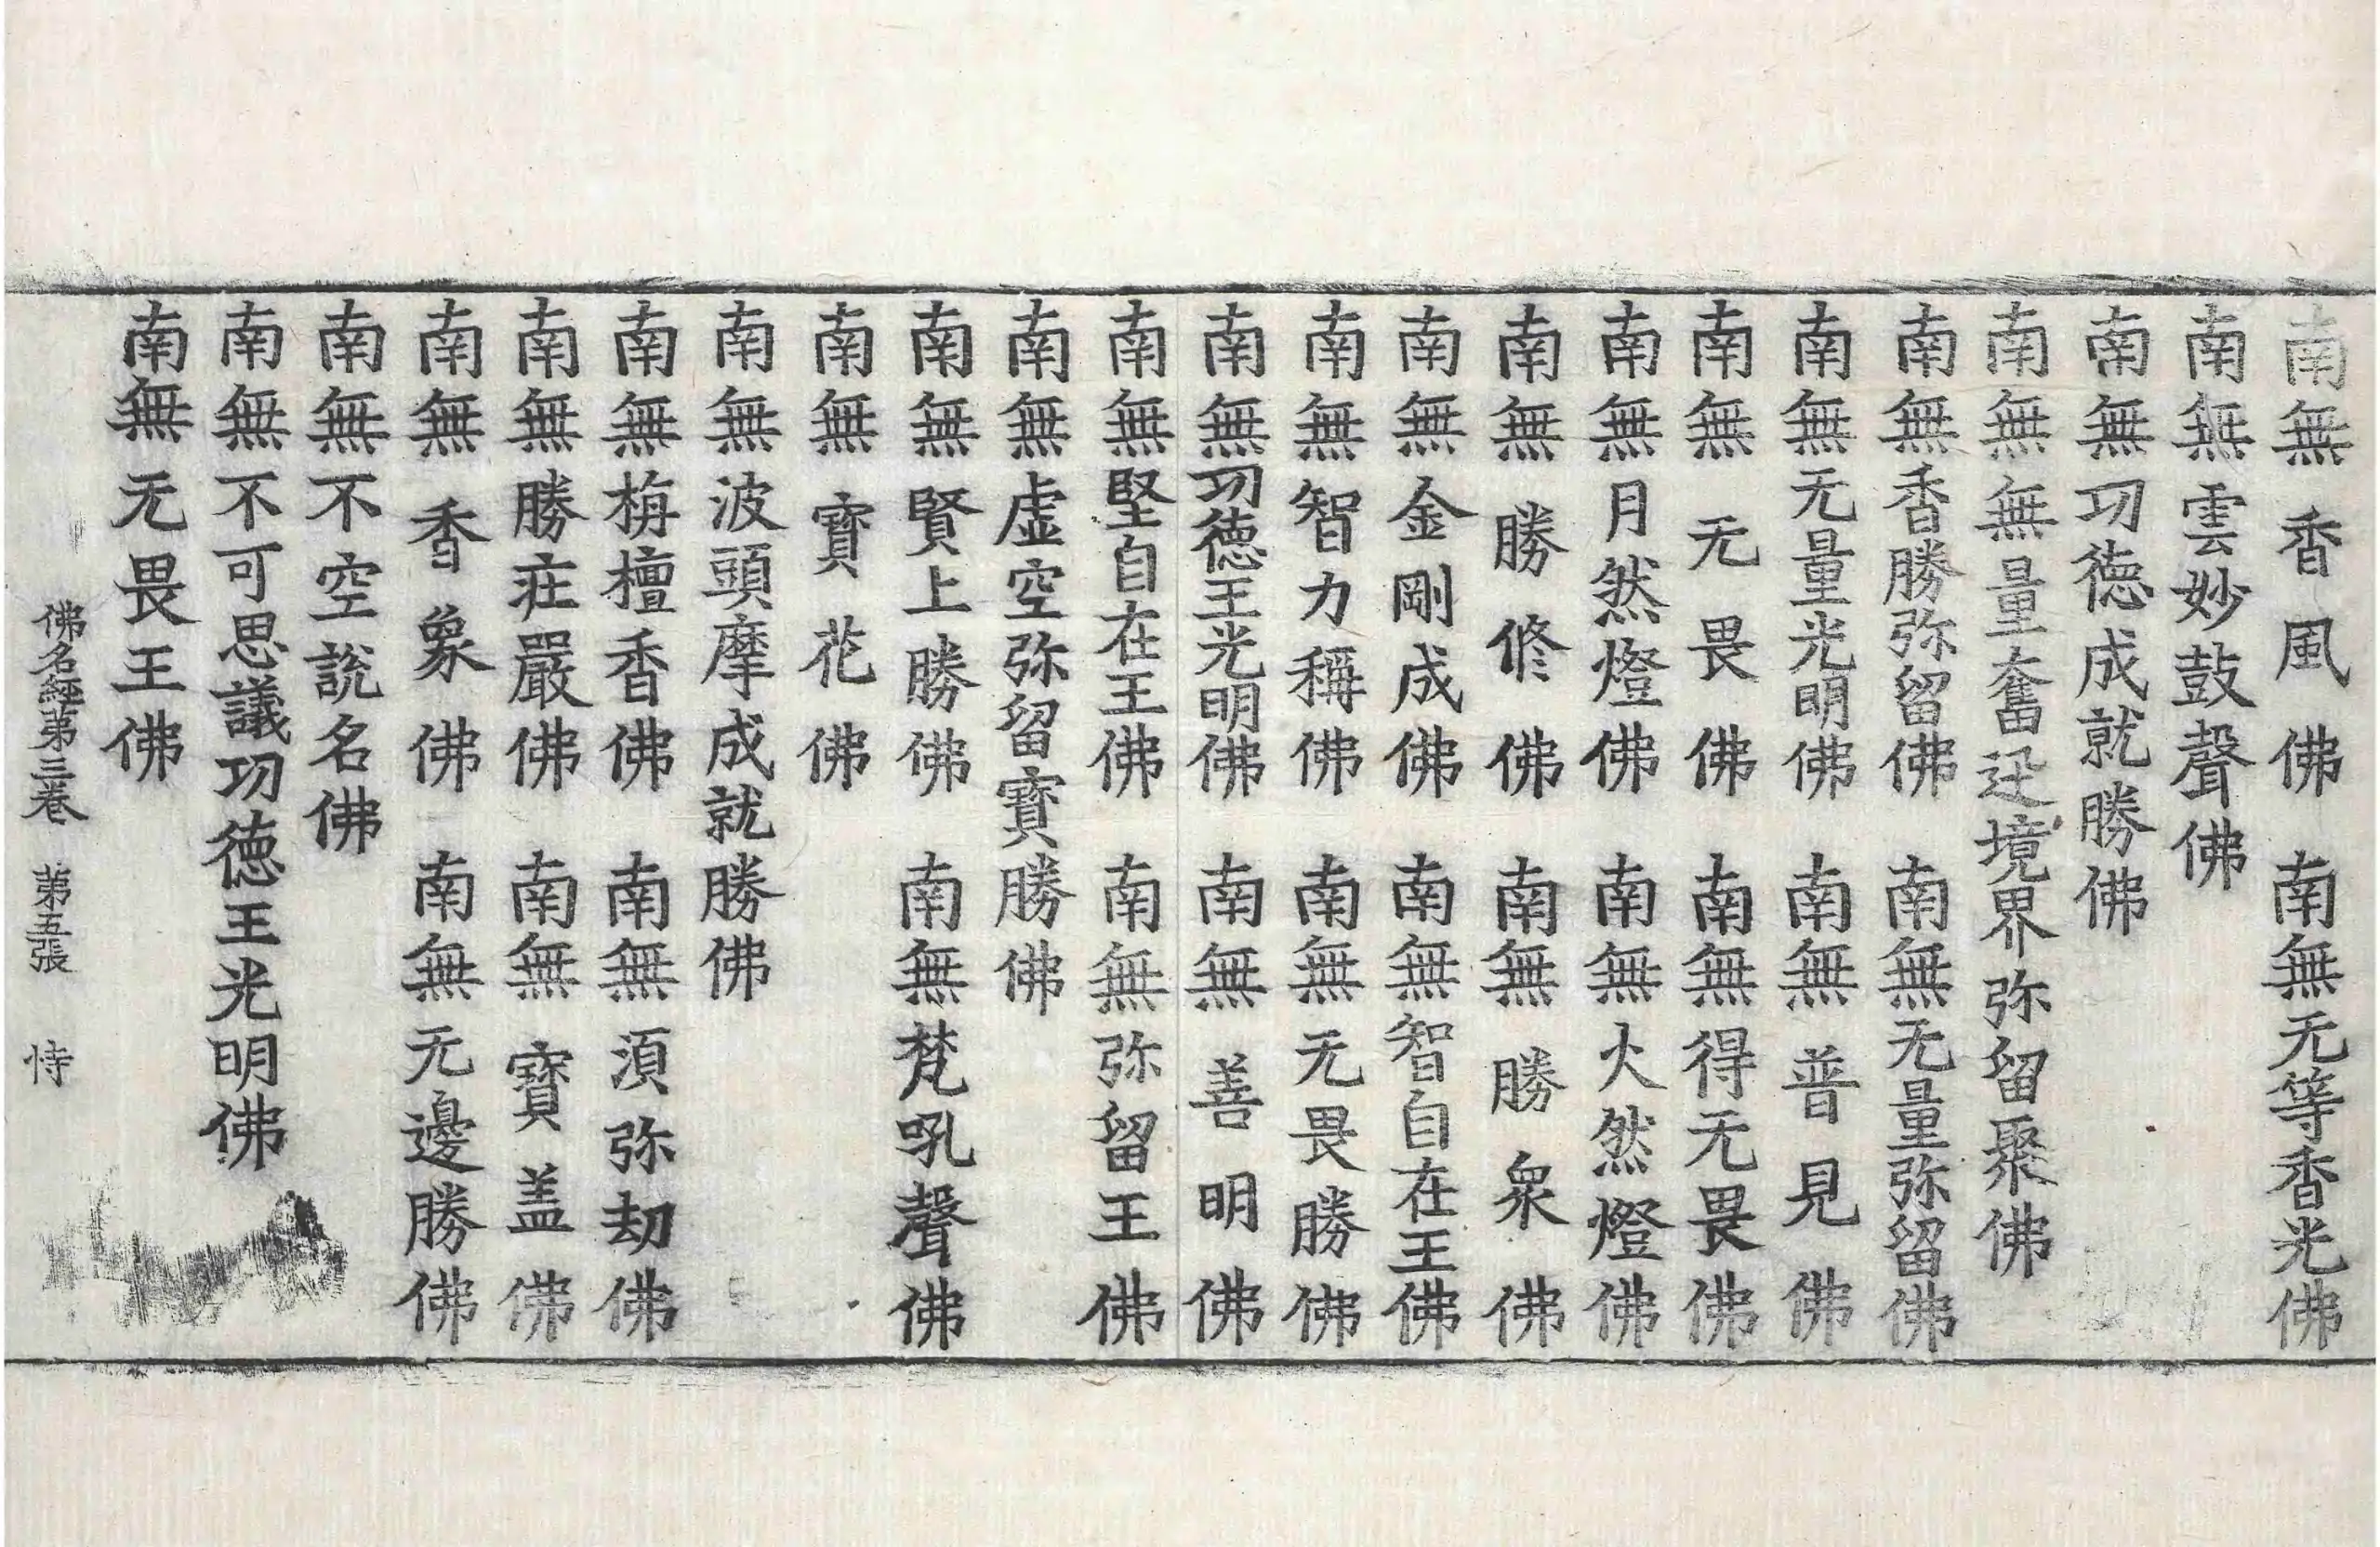 南無香風佛　南無无等香光佛
南無雲妙鼓聲佛
南無功德成就勝佛
南無無量奮迅境界弥留聚佛
南無香勝弥留佛　南無无量弥留佛
南無无量光明佛　南無普見佛
南無无畏佛　南無得无畏佛
南無月然燈佛　南無火然燈佛
南無勝修佛　南無勝衆佛
南無金剛成佛　南無智自在王佛
南無智力稱佛　南無无畏勝佛
南無功德王光明佛　南無善明佛
南無堅自在王佛　南無弥留王佛
南無虛空弥留寶勝佛
南無賢上勝佛　南無梵吼聲佛
南無寶花佛
南無波頭摩成就勝佛
南無栴檀香佛　南無湏弥劫佛
南無勝莊嚴佛　南無寶盖佛
南無香象佛　南無无邊勝佛
南無不空說名佛
南無不可思議功德王光明佛
南無无畏王佛
佛名經第三卷　第五張　恃